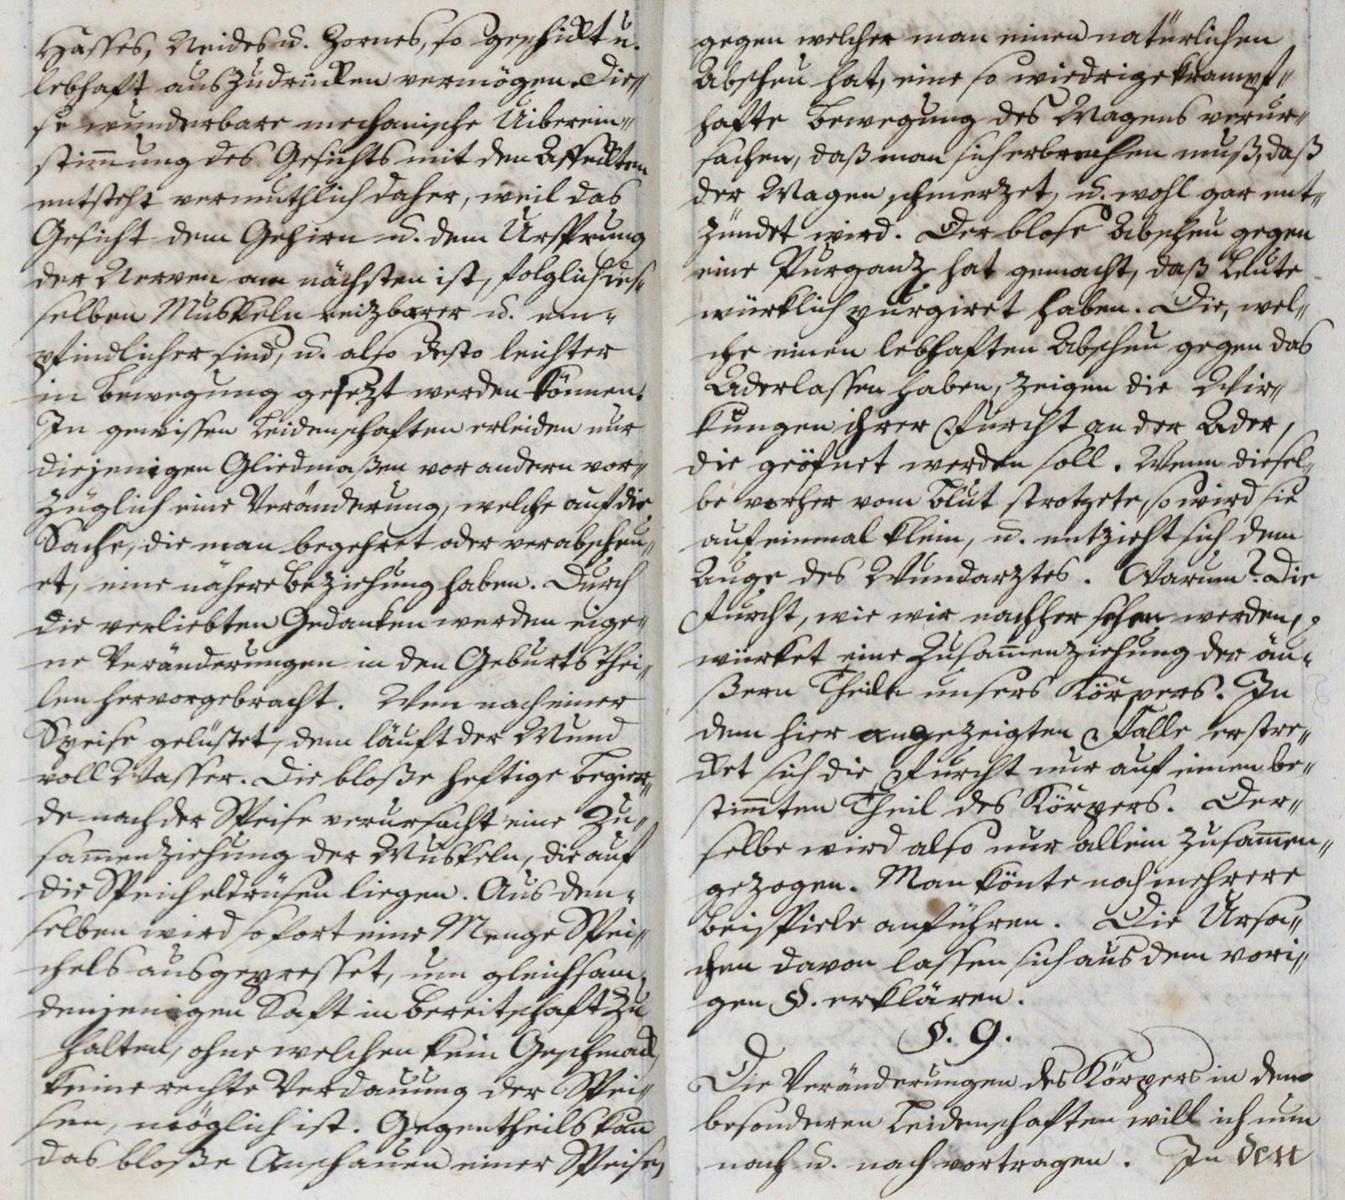 Hasses, Neides u. Zornes, so geschikt u.
lebhaft auszudrucken vermögen. Die-
se wunderbare mechanische Uiberein-
stim̅ung des Gesichts mit den Affeckten
entsteht vermuthlich daher, weil das
Gesicht dem Gehirn u. dem Ursprung
der Nerven am nächsten ist, folglich des-
selben Muskeln reizbarer u. em-
pfindlicher sind, u. also desto leichter
in Bewegung gesezt werden können.
In gewissen Leidenschaften erleiden nur
diejenigen Gliedmaßen vor andern vor-
züglich eine Veränderung, welche auf die
Sache, die man begehret oder verabscheu-
et, eine nähere Beziehung haben. Durch
die verliebten Gedanken werden eige-
ne Veränderungen in den Geburts Thei-
len hervorgebracht. Wem nach einer
Speise gelüstet, dem läuft der Mund
voll Wasser. Die bloße heftige Begier-
de nach der Speise verursacht eine Zu-
sam̅enziehung der Muskeln, die auf
die Speicheldrüsen liegen. Aus den-
selben wird sofort eine Menge Spei-
chels ausgepresset, um gleichsam
denjenigen Saft in Bereitschaft zu
halten, ohne welchen kein Geschmack,
keine rechte Verdauung der Spei-
sen, möglich ist. Gegentheils kan̅
das bloße Anschauen einer Speise,
gegen welcher man einen natürlichen
Abscheu hat, eine so wiedrige krampf-
hafte Bewegung des Magens verur-
sachen, daß man sich erbrechen muß, daß
der Magen schmerzet, u. wohl gar ent-
zündet wird. Der blose Abscheu gegen
eine Purganz hat gemacht, daß Leute
würklich purgiret haben. Die, wel-
che einen lebhaften Abscheu gegen das
Aderlassen haben, zeigen die Wir-
kungen ihrer Furcht an der Ader,
die geöfnet werden soll. Wenn diesel-
be vorher vom Blut strotzete, so wird sie
auf einmal klein, u. entzieht sich dem
Auge des Wundarztes. Warum? Die
Furcht, wie wir nachher sehen werden,
würket eine Zusam̅enziehung der äu-
ßern Theile unsers Körpers. In
dem hier angezeigten Falle erstre-
cket sich die Furcht nur auf einen be-
stim̅ten Theil des Körpers. Der-
selbe wird also nur allein zusam̅en-
gezogen. Man könte noch mehrere
Beispiele anführen. Die Ursa-
chen davon lassen sich aus dem vori-
gen §. erklären.
§. 9.
Die Veränderungen des Körpers in den
besonderen Leidenschaften will ich nun
nach u. nach vortragen. In den